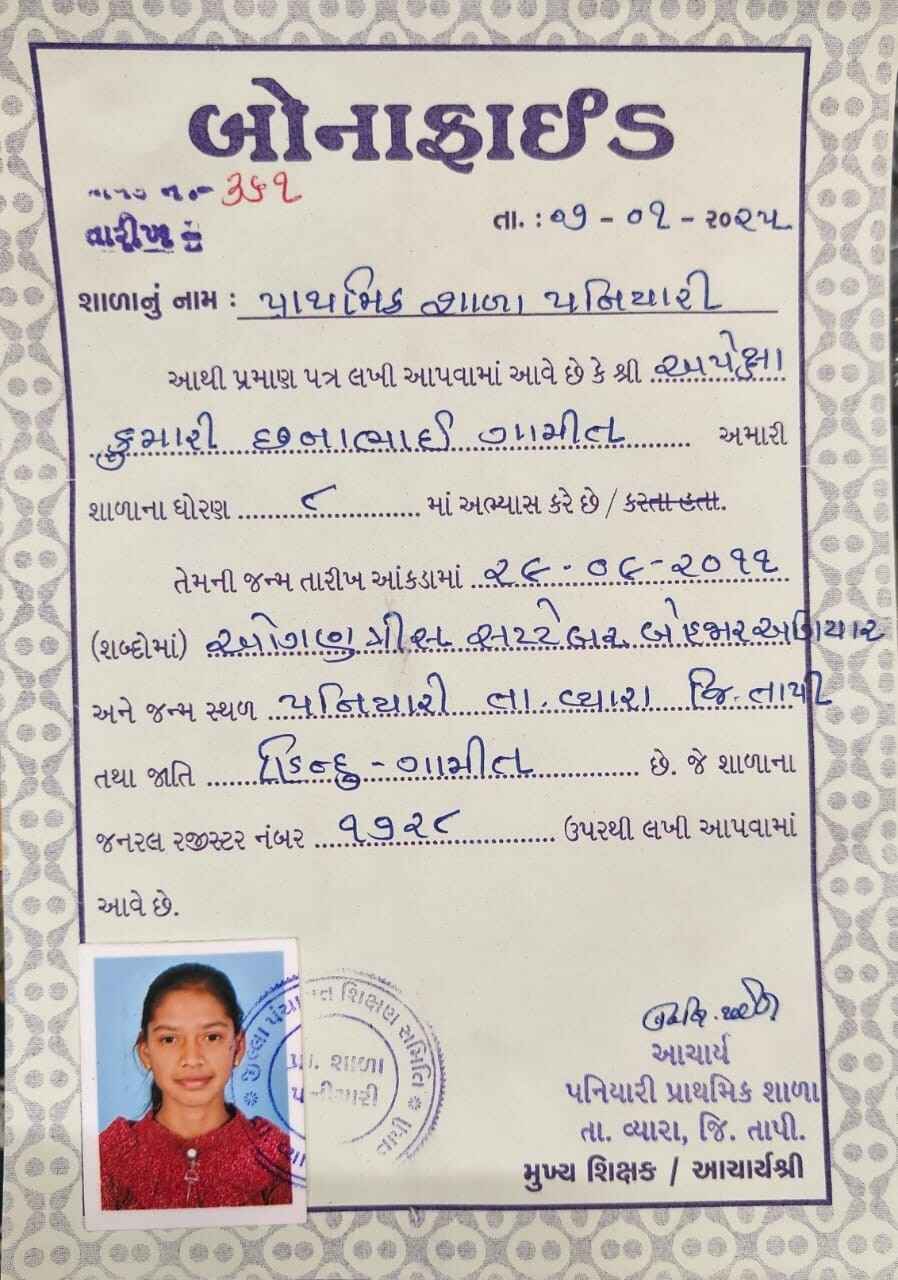 બોનાફાઈડ
નં. ૩૬૧
તારીખ :
તા. : ૦૭ - ૦૧ - ૨૦૨૫
શાળાનું નામ : પ્રાથમિક શાળા પનિયારી
આથી પ્રમાણ પત્ર લખી આપવામાં આવે છે કે શ્રી અપેક્ષા
કુમારી છનાભાઈ ગામીત અમારી
શાળાના ધોરણ ૮ માં અભ્યાસ કરે છે / કરતા હતા.
તેમની જન્મ તારીખ આંકડામાં ૨૯-૦૯-૨૦૧૧
(શબ્દોમાં) ઓગણત્રીસ સપ્ટેબર બેહજારઅગિયાર
અને જન્મ સ્થળ પનિયારી તા. વ્યારા જિ. તાપી
તથા જાતિ હિન્દુ - ગામીત છે. જે શાળાના
જનરલ રજીસ્ટર નંબર ૧૭૨૮ ઉપરથી લખી આપવામાં
આવે છે.
જિલ્લા પંચાયત શિક્ષણ સમિતિ * તાપી
પ્રા. શાળા
પનીયારી
આચાર્ય
પનિયારી પ્રાથમિક શાળા
તા. વ્યારા, જિ. તાપી.
મુખ્ય શિક્ષક / આચાર્યશ્રી